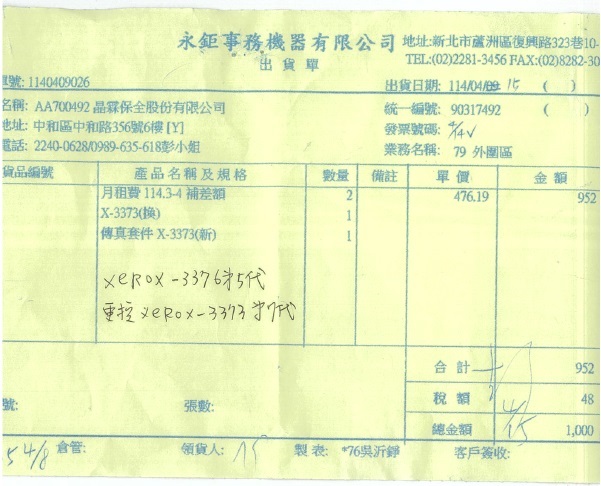 永鉅事務機器有限公司 地址:新北市蘆洲區復興路323巷10-
出貨單 TEL:(02)2281-3456 FAX:(02)8282-30
單號: 1140409026 出貨日期: 114/04/09 15 ( )
名稱: AA700492 晶霖保全股份有限公司 統一編號: 90317492 ( )
地址: 中和區中和路356號6樓 [Y] 發票號碼: 4/14
電話: 2240-0628/0989-635-618彭小姐 業務名稱: 79 外圍區
貨品編號 產品名稱及規格 數量 備註 單價 金額
月租費 114.3-4 補差額 2 476.19 952
X-3373(換) 1
傳真套件 X-3373(新) 1
XEROX-3376第5代
重控XEROX-3373第7代
合計 952
稅額 48
號: 張數: 4/15
總金額 1,000
4/8 倉管: 領貨人: 製表: *76吳沂錚 客戶簽收: